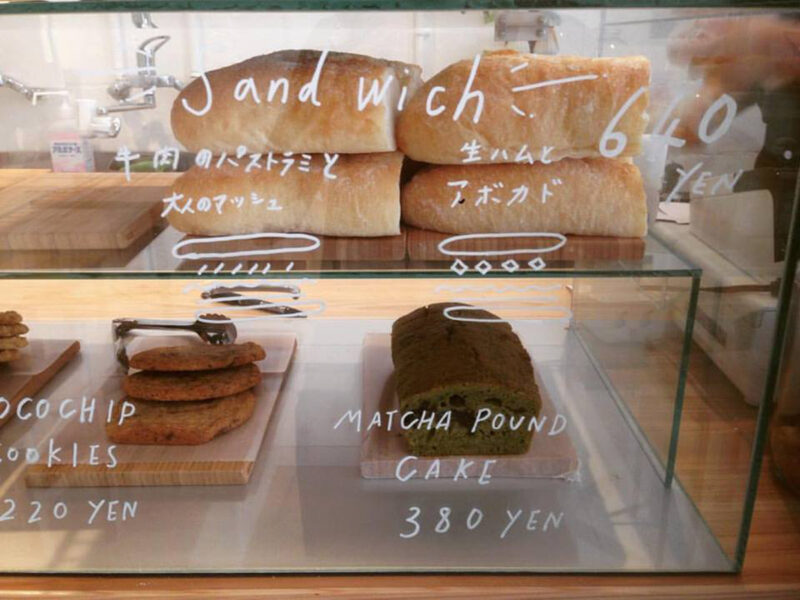 Sandwich 640
YEN
牛肉のパストラミと
大人のマッシュ
生ハムと
アボカド
OCOCHIP
COOKIES
220 YEN
MATCHA POUND
CAKE
380 YEN